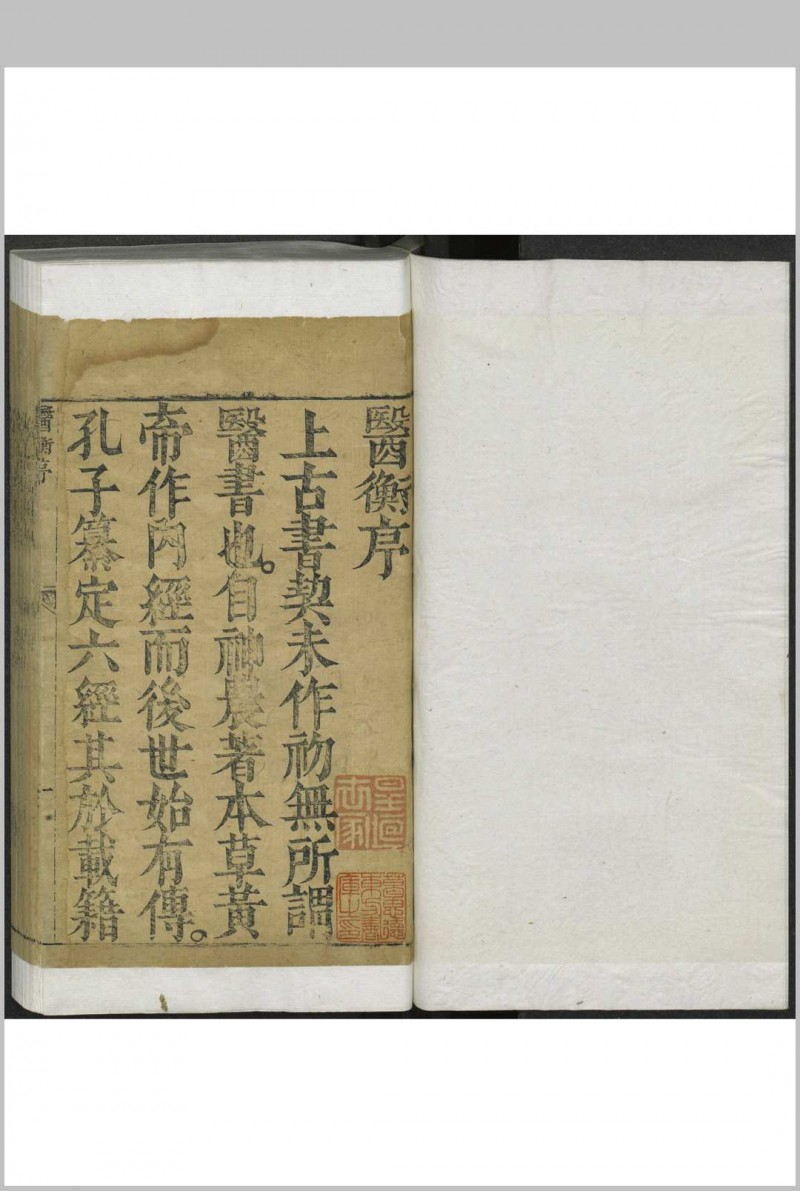 醫衡序
上古書契未作初無所謂
醫書也。自神農著本草黃
帝作內經而後世始有傳。
孔子纂定六經其於載籍
醫衡序
一